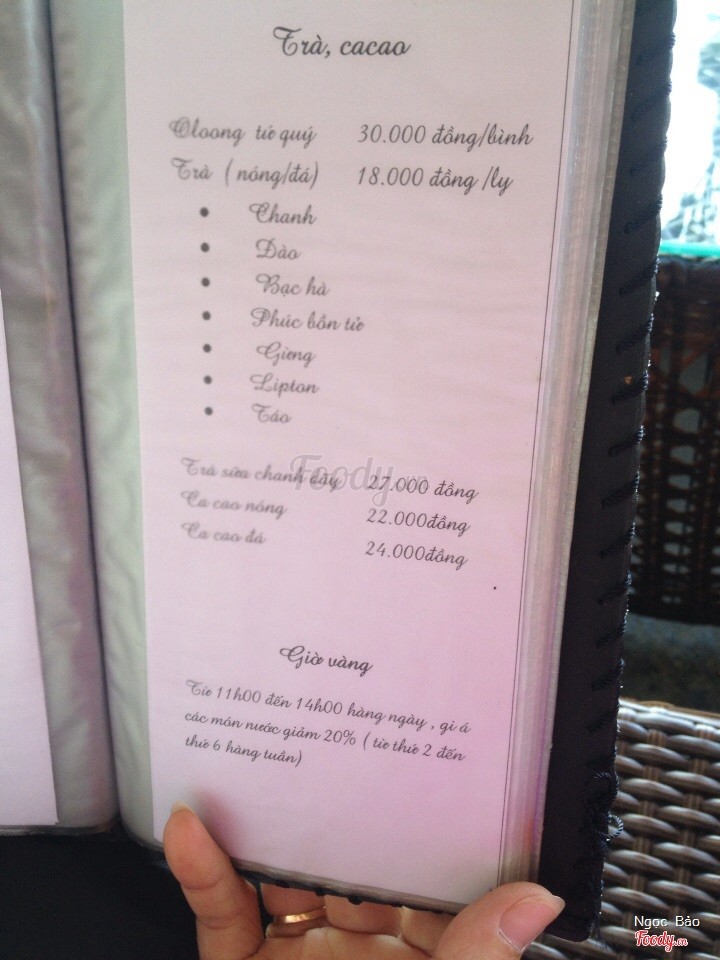 Trà, cacao
Oloong tứ quý 30.000 đồng/bình
Trà ( nóng/đá) 18.000 đồng /ly
• Chanh
• Đào
• Bạc hà
• Phúc bồn tử
• Gừng
• Lipton
• Táo
Trà sữa chanh dây 27.000 đồng
Ca cao nóng 22.000đồng
Ca cao đá 24.000đồng
Foody.vn
Giờ vàng
Từ 11h00 đến 14h00 hàng ngày , gi á
các món nước giảm 20% ( từ thứ 2 đến
thứ 6 hàng tuần)
Ngọc Bảo
Foody.vn